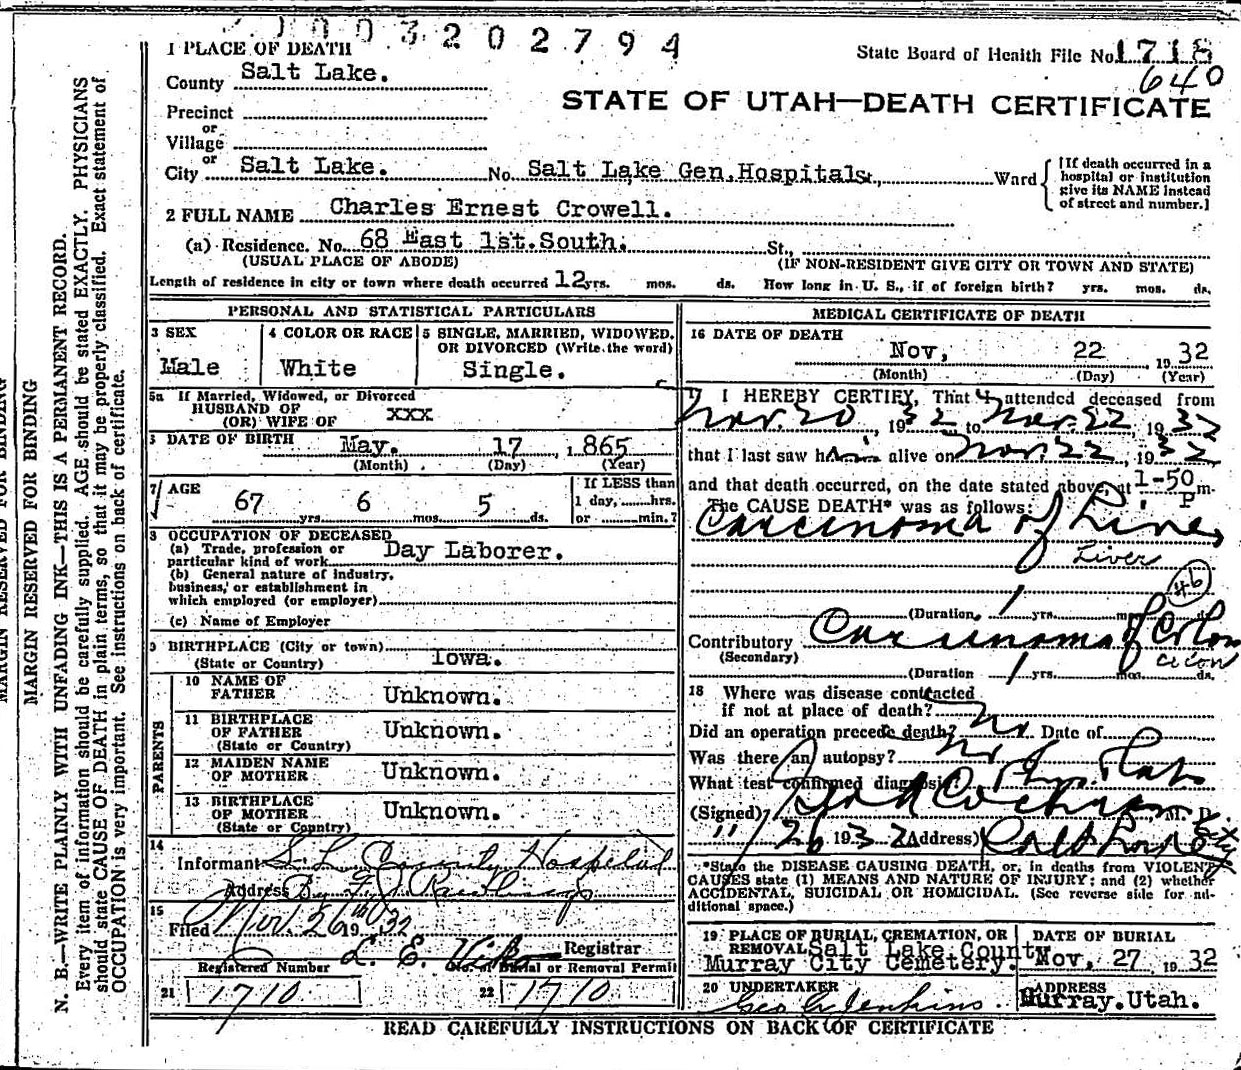 003202794
1 PLACE OF DEATH
State Board of Health File No. 1718
640
County Salt Lake.
STATE OF UTAH—DEATH CERTIFICATE
Precinct
or
Village
or
City Salt Lake. No. Salt Lake Gen. Hospital, Ward
[If death occurred in a hospital or institution give its NAME instead of street and number.]
2 FULL NAME Charles Ernest Crowell.
(a) Residence. No. 68 East 1st. South. St.,
(USUAL PLACE OF ABODE) (IF NON-RESIDENT GIVE CITY OR TOWN AND STATE)
Length of residence in city or town where death occurred 12 yrs. mos. ds. How long in U. S., if of foreign birth? yrs. mos. ds.
PERSONAL AND STATISTICAL PARTICULARS
3 SEX
Male
4 COLOR OR RACE
White
5 SINGLE, MARRIED, WIDOWED, OR DIVORCED (Write the word)
Single.
5a If Married, Widowed, or Divorced
HUSBAND OF
(OR) WIFE OF xxx
DATE OF BIRTH May. 17 , 1865
(Month) (Day) (Year)
7 AGE
67 yrs. 6 mos. 5 ds.
If LESS than
1 day, hrs.
or min.?
8 OCCUPATION OF DECEASED
(a) Trade, profession or particular kind of work Day Laborer.
(b) General nature of industry, business, or establishment in which employed (or employer)
(c) Name of Employer
9 BIRTHPLACE (City or town)
(State or Country) Iowa.
PARENTS
10 NAME OF FATHER Unknown.
11 BIRTHPLACE OF FATHER (State or Country) Unknown.
12 MAIDEN NAME OF MOTHER Unknown.
13 BIRTHPLACE OF MOTHER (State or Country) Unknown.
14
Informant S L County Hospital
Address By
15
Filed Nov. 26th 1932
L. E. Viko Registrar
Registered Number No. of Burial or Removal Permit
21 1710 22 1710
MEDICAL CERTIFICATE OF DEATH
16 DATE OF DEATH
Nov, 22 1932
(Month) (Day) (Year)
17 I HEREBY CERTIFY, That I attended deceased from
Nov. 20, 1932 to Nov. 22, 1932
that I last saw him alive on Nov 22, 1932,
and that death occurred, on the date stated above, at 1-50 P m.
The CAUSE DEATH* was as follows:
Carcinoma of Liver
Liver
46
(Duration 1 yrs. mos. ds.
Contributory Carcinoma of Colon
(Secondary) colon
(Duration 1 yrs. mos. ds.
18 Where was disease contracted
if not at place of death?
Did an operation precede death? No. Date of
Was there an autopsy? No
What test confirmed diagnosis Phys. Lab
(Signed) Cochran M. D.
11/26 1932 (Address) Salt Lake City
*State the DISEASE CAUSING DEATH, or, in deaths from VIOLENT
CAUSES state (1) MEANS AND NATURE OF INJURY; and (2) whether
ACCIDENTAL, SUICIDAL OR HOMICIDAL. (See reverse side for additional space.)
19 PLACE OF BURIAL, CREMATION, OR REMOVAL Salt Lake County
Murray City Cemetery.
DATE OF BURIAL
Nov, 27 1932
20 UNDERTAKER
Geo A Jenkins.
ADDRESS
Murray. Utah.
READ CAREFULLY INSTRUCTIONS ON BACK OF CERTIFICATE
MARGIN RESERVED FOR BINDING
MARGIN RESERVED FOR BINDING
N. B.—WRITE PLAINLY WITH UNFADING INK—THIS IS A PERMANENT RECORD.
Every item of information should be carefully supplied. AGE should be stated EXACTLY. PHYSICIANS
should state CAUSE OF DEATH in plain terms, so that it may be properly classified. Exact statement of
OCCUPATION is very important. See instructions on back of certificate.